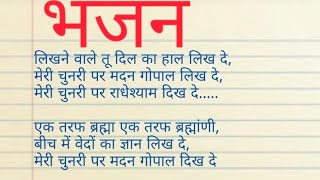 भजन
लिखने वाले तू दिल का हाल लिख दे,
मेरी चुनरी पर मदन गोपाल लिख दे,
मेरी चुनरी पर राधेश्याम दिख दे.....
एक तरफ ब्रह्मा एक तरफ ब्रह्मांणी,
बीच में वेदों का ज्ञान लिख दे,
मेरी चुनरी पर मदन गोपाल दिख दे